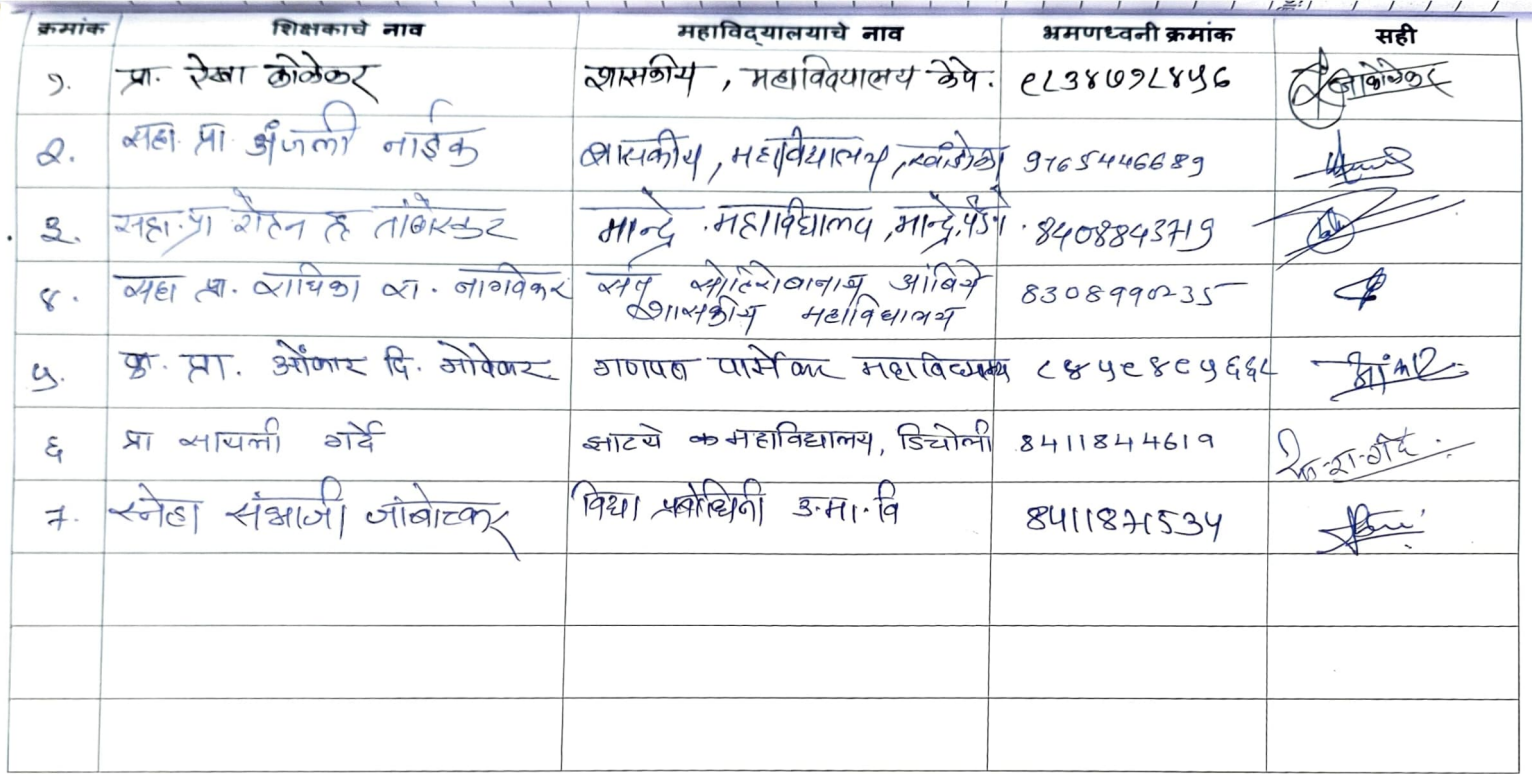 क्रमांक शिक्षकाचे नाव महाविद्यालयाचे नाव भ्रमणध्वनी क्रमांक सही
१. प्रा. रेखा कोळेकर शासकीय, महाविद्यालय केपे. ९८३४७१८४५6
२. सहा. प्रा. अंजली नाईक शासकीय, महाविद्यालय, खांडोळा 9765446689
३. सहा. प्रा रोहन ह तांबोस्कर मान्द्रे. महाविद्यालय, मान्द्रे, पेडणे. 8408843719
४. सहा प्रा. राधिका रा. नागवेकर संत सोहिरोबानाथ आंबिये 8308990235
शासकीय महाविद्यालय
५. प्रा. ओंकार दि. गणपत पार्सेकर महाविद्यालय ८४५९४९५६६८
६ प्रा सायली गर्दे झाटये महाविद्यालय, डिचोली 8411844619
७. स्नेहा संभाजी जांबोटकर विद्या प्रबोधिनी उ.मा.वि 8411871534